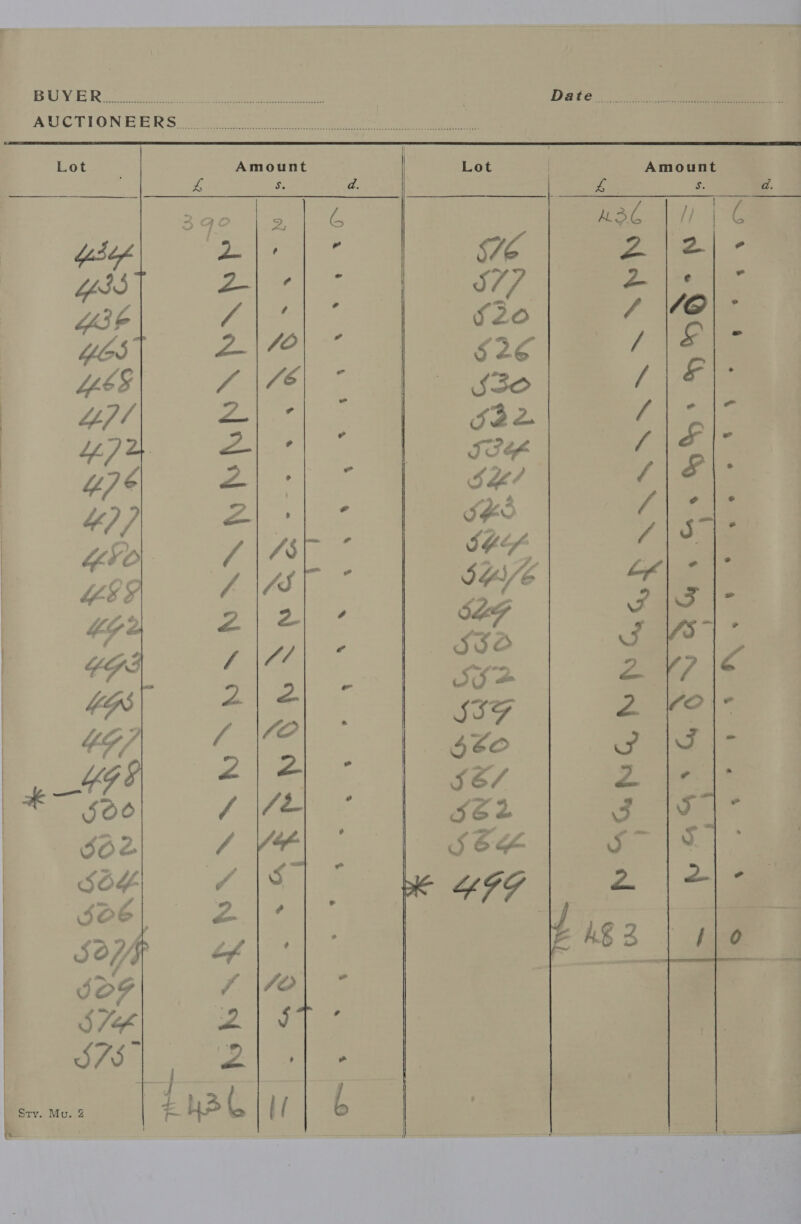 BUYER
Date
AUCTIONEERS
Lot Amount
£ s. d.
390 2 6
434 2 " "
435 2 " "
436 1 " "
465 2 10 "
468 1 16 "
471 2 " "
472 2 " "
476 2 " "
477 2 " "
480 1 15 "
488 1 15 "
492 2 2 "
493 1 11 "
495 2 2 "
497 1 10 "
498 2 2 "
* 500 1 12 "
502 1 14 "
504 1 5 "
506 2 " "
507/8 4 " "
509 1 10 "
514 2 5 "
515 2 " "
£436 11 6
Stv. Mu. 2
Lot Amount
£ s. d.
436 11 6
516 2 2 "
517 2 " "
520 1 10 "
526 1 8 "
530 1 8 "
532 1 " "
534 1 8 "
541 1 8 "
543 1 " "
544 1 5 "
545/6 4 " "
549 3 3 "
550 3 15 "
552 2 17 6
559 2 10 "
560 3 3 "
561 2 " "
562 3 5 "
564 5 5 "
* 499 2 2 "
£483 1 0